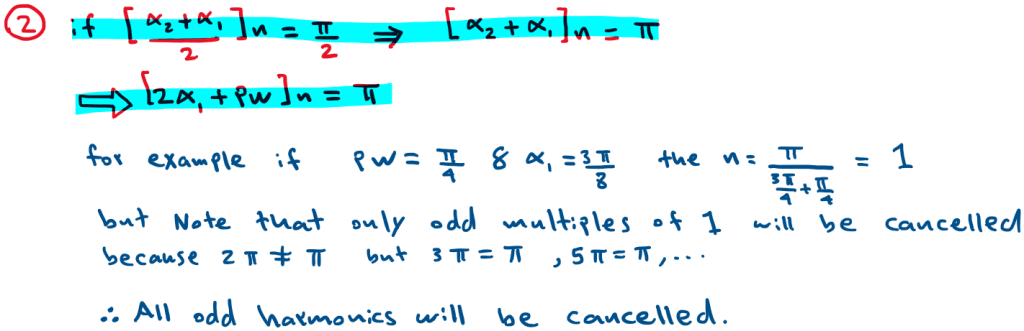 ② if [α₂+α₁/2]n = π/2 ⇒ [α₂+α₁]n = π
⇒ [2α₁+Pw]n = π
for example if Pw = π/4 & α₁ = 3π/8 the n = π/(3π/4 + π/4) = 1
but Note that only odd multiples of 1 will be cancelled
because 2π ≠ π but 3π = π , 5π = π , ...
∴ All odd harmonics will be cancelled.